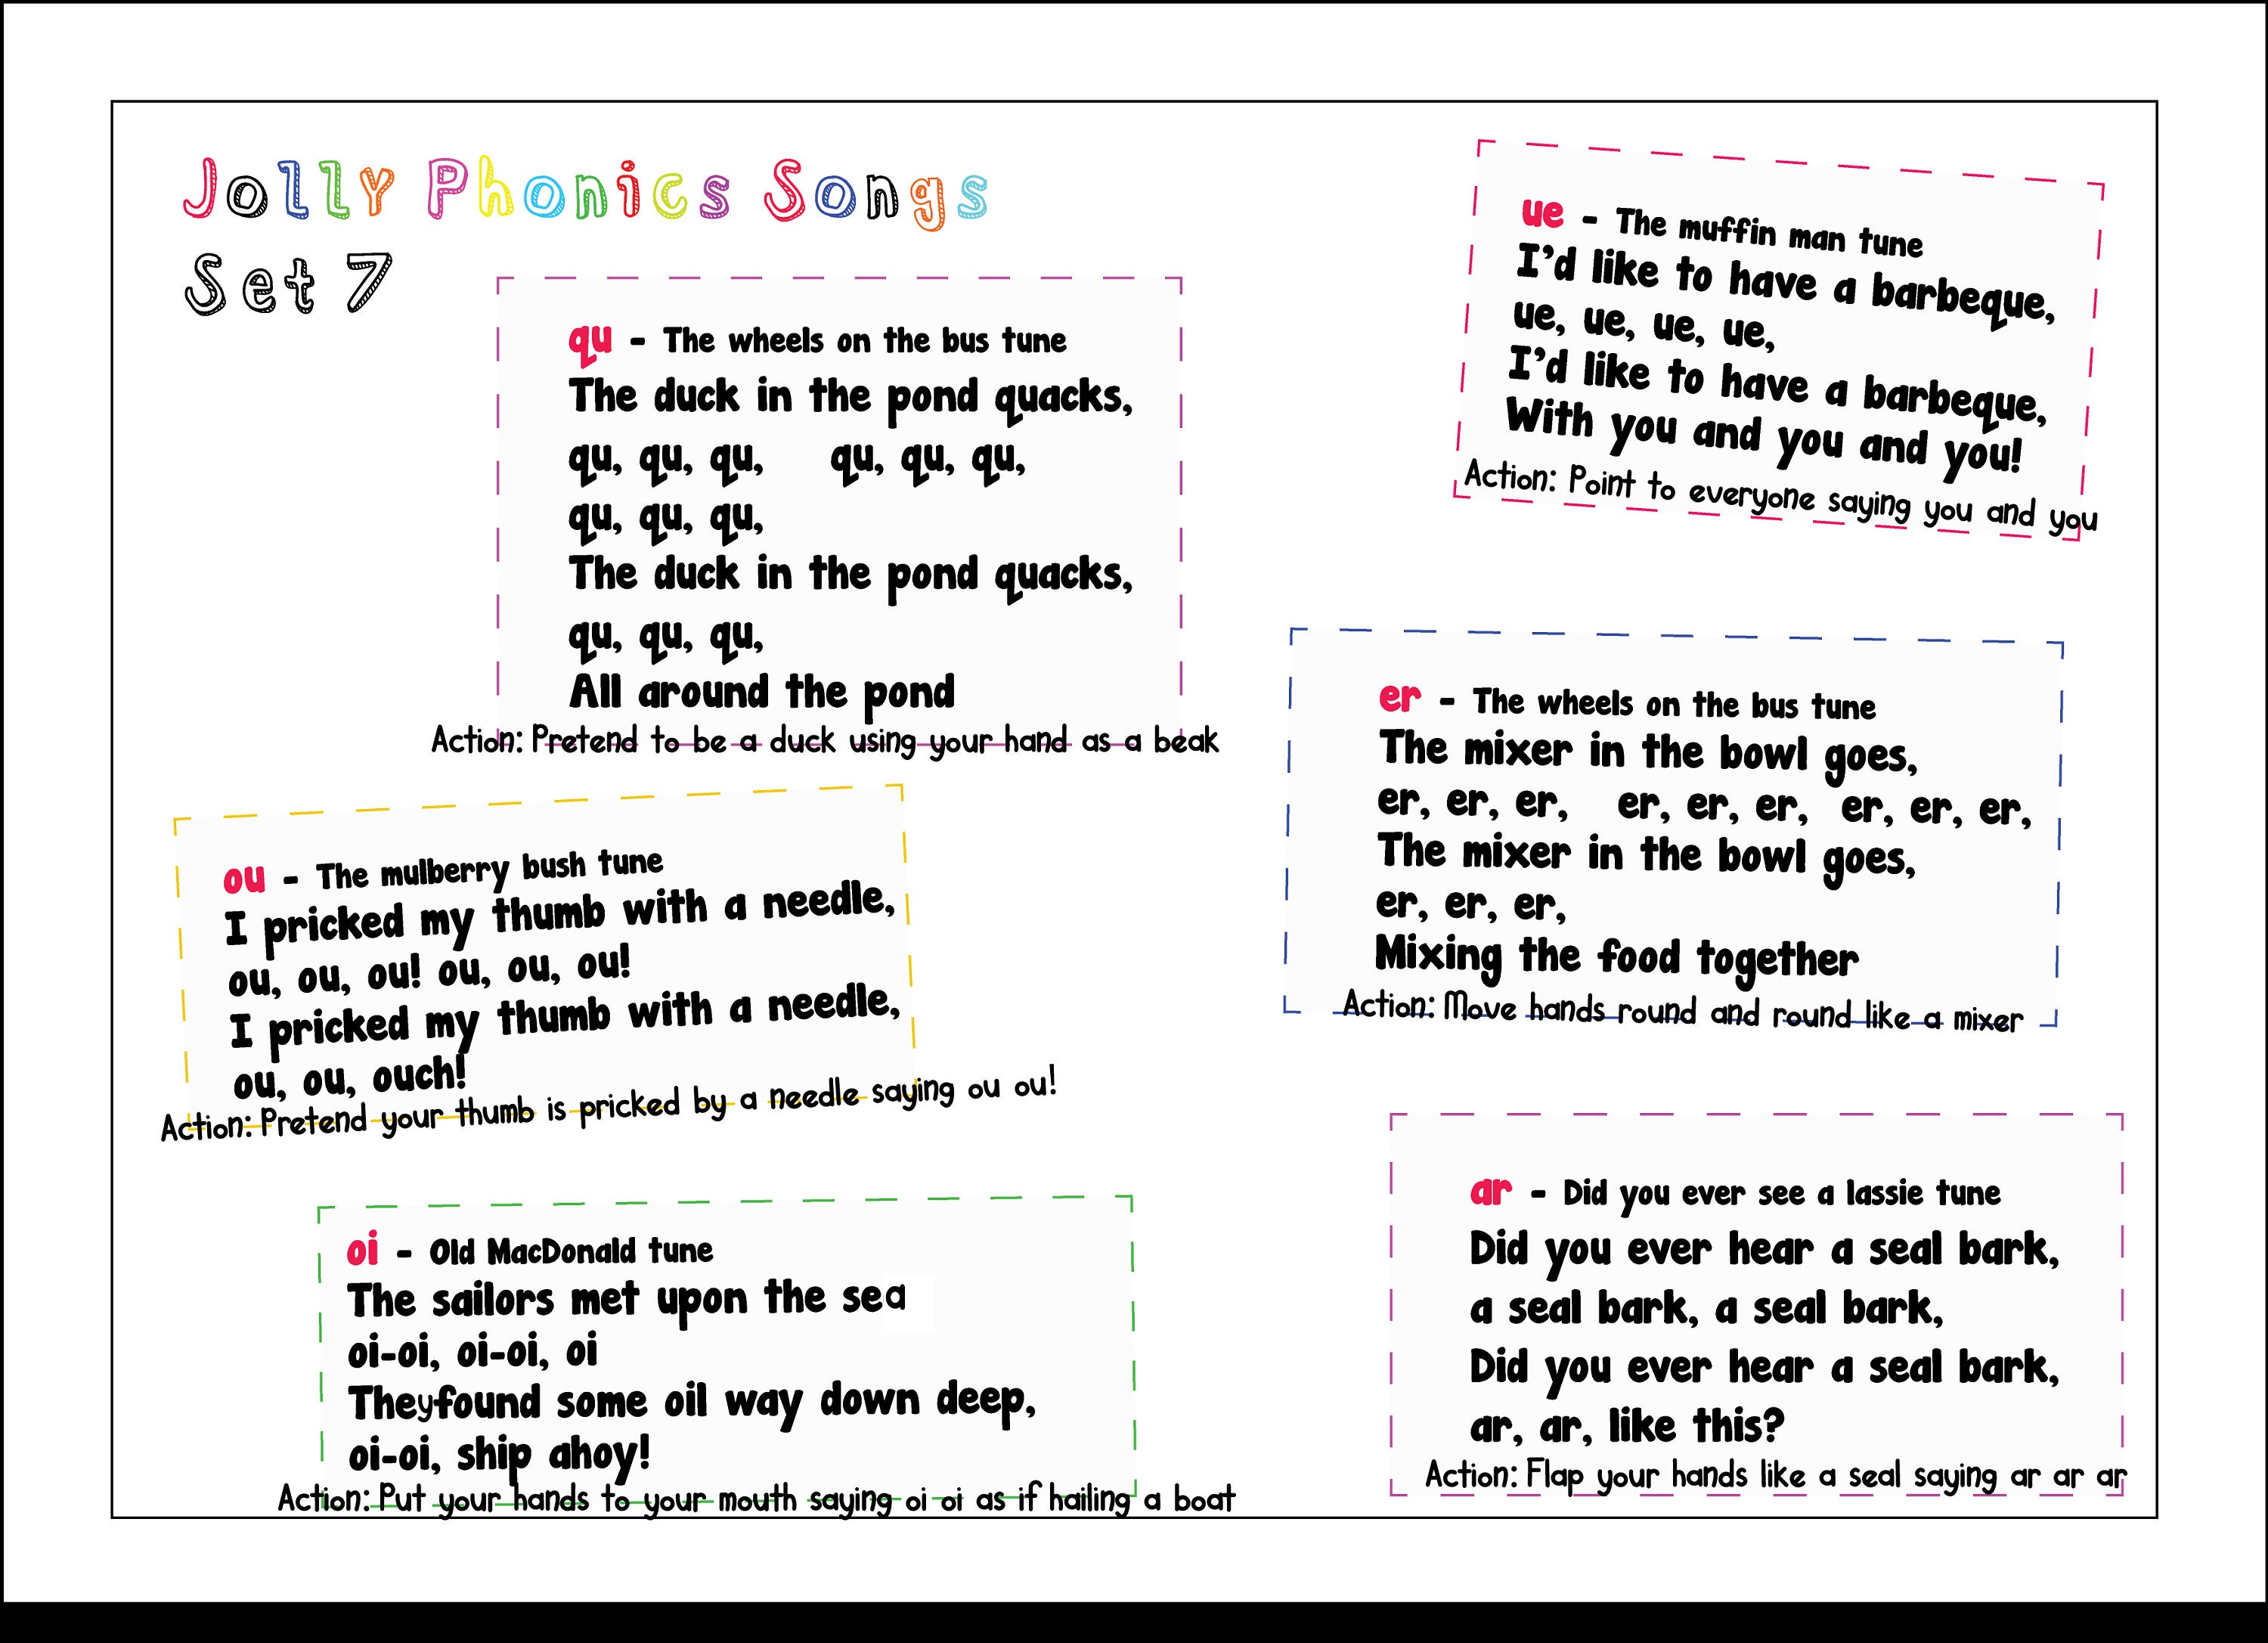 Jolly Phonics Songs
Set 7
qu - The wheels on the bus tune
The duck in the pond quacks,
qu, qu, qu, qu, qu, qu,
qu, qu, qu,
The duck in the pond quacks,
qu, qu, qu,
All around the pond
Action: Pretend to be a duck using your hand as a beak
ou - The mulberry bush tune
I pricked my thumb with a needle,
ou, ou, ou! ou, ou, ou!
I pricked my thumb with a needle,
ou, ou, ouch!
Action: Pretend your thumb is pricked by a needle saying ou ou!
oi - Old MacDonald tune
The sailors met upon the sea
oi-oi, oi-oi, oi
Theyfound some oil way down deep,
oi-oi, ship ahoy!
Action: Put your hands to your mouth saying oi oi as if hailing a boat
ue - The muffin man tune
I'd like to have a barbeque,
ue, ue, ue, ue,
I'd like to have a barbeque,
With you and you and you!
Action: Point to everyone saying you and you
er - The wheels on the bus tune
The mixer in the bowl goes,
er, er, er, er, er, er, er, er, er,
The mixer in the bowl goes,
er, er, er,
Mixing the food together
Action: Move hands round and round like a mixer
ar - Did you ever see a lassie tune
Did you ever hear a seal bark,
a seal bark, a seal bark,
Did you ever hear a seal bark,
ar, ar, like this?
Action: Flap your hands like a seal saying ar ar ar